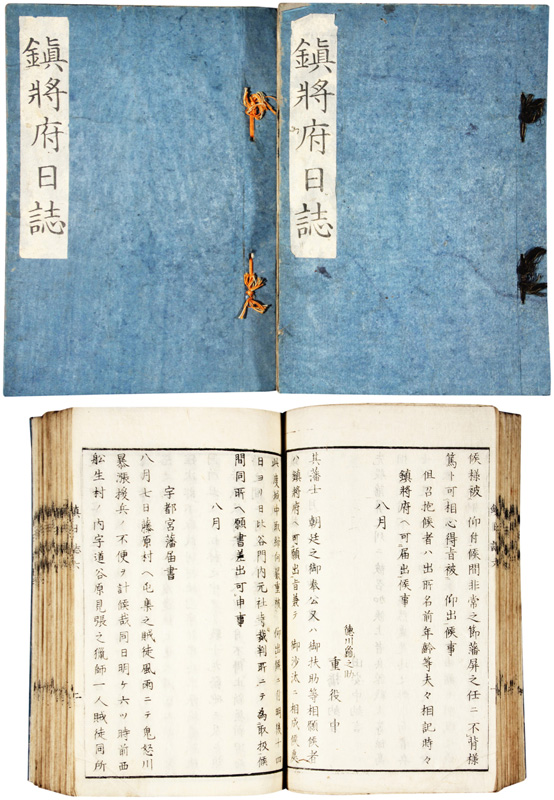 鎭將府日誌
鎭將府日誌
候樣被 仰付候間非常之節藩屏之任ニ不背樣
篤ト可相心得旨被 仰出候事
但召抱候者ハ出所名前年齡等夫々相記時々
鎮將府ヘ可届出候事
八月
徳川龜之助
重役中
其藩士 朝廷之御奉公又ハ御扶助等相願候者
ハ鎮將府ヘ可願出旨兼テ 御沙汰ニ相成候處
日比谷門内元社寺裁判所ニテ為取扱候
間同所ヘ願書差出可申事
八月
宇都宮藩届書
八月七日藤原村ヘ屯集之賊徒風雨ニテ鬼怒川
暴漲援兵ノ不便ヲ計候哉同日明ケ六ツ時前西
舩生村ノ内字道谷原見張之獵師一人賊徒同所